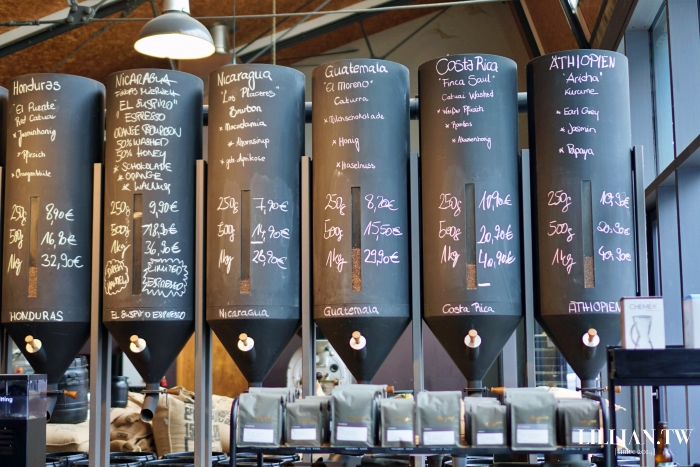 Honduras
"El Puente"
Red Catuai
* Pfirsich
250g 8,90€
500g 16,90€
1kg 32,90€
HONDURAS
NICARAGUA
"EL SUSPIRO"
ESPRESSO
ORANGE BOURBON
50% WASHED
50% HONEY
* SCHOKOLADE
* ORANGE
* WALNUSS
250g 9,90€
500g 18,90€
1kg 36,90€
LIMITED
ESPRESSO
EL SUSPIRO ESPRESSO
Nicaragua
"Los Placeres"
Bourbon
* Macadamia
* Ahornsirup
* geb. Aprikose
250g 7,90€
500g 14,90€
1kg 28,90€
Nicaragua
Guatemala
"El Moreno"
Caturra
* Milchschokolade
* Honig
* Haselnuss
250g 8,20€
500g 15,50€
1kg 29,90€
Guatemala
Costa Rica
"Finca Saul"
Catuai Washed
250g 10,90€
500g 20,90€
1kg 40,90€
Costa Rica
ÄTHIOPIEN
"Aricha"
Kurume
* Earl Grey
* Jasmin
* Papaya
250g 10,90€
500g 20,90€
1kg 40,90€
ÄTHIOPIEN
CHEMEX
LILLIAN.TW